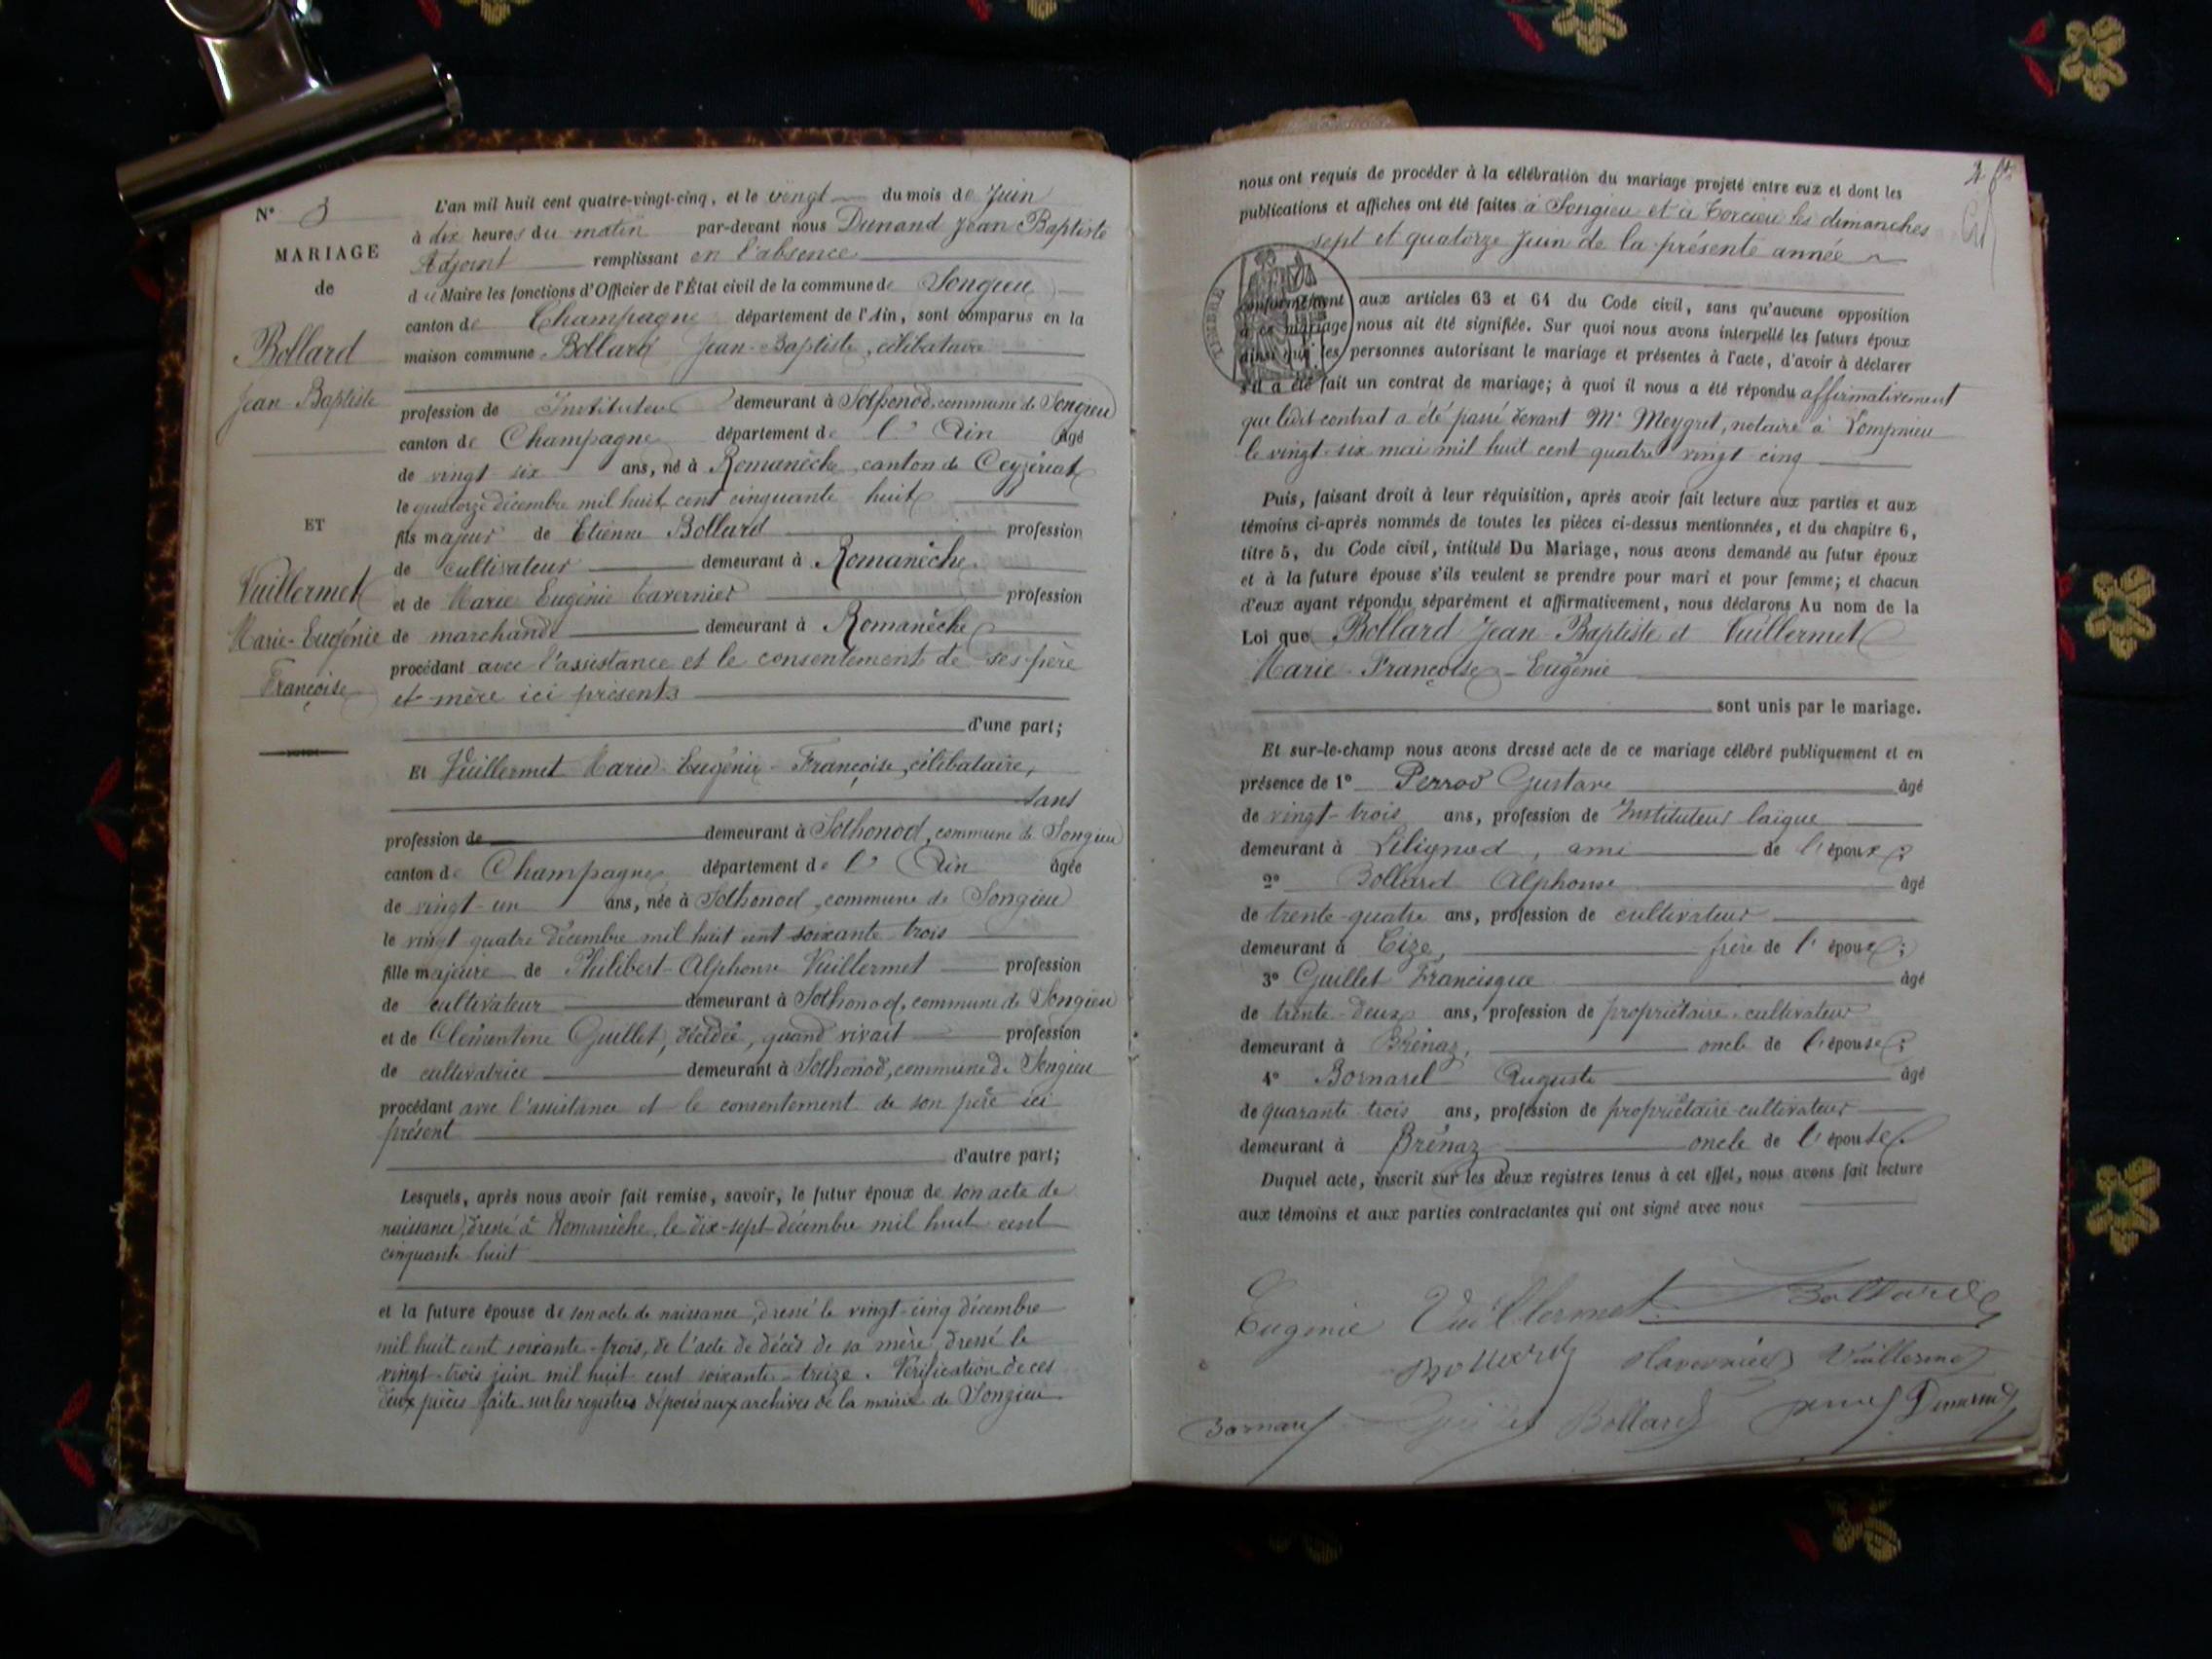 N° 3
MARIAGE
de
Bollard
Jean-Baptiste
ET
Vuillermet
Marie-Eugénie
Françoise
L'an mil huit cent quatre-vingt-cinq, et le vingt du mois de Juin
à dix heures du matin par-devant nous Dunand Jean Baptiste
Adjoint remplissant en l'absence
du Maire les fonctions d'Officier de l'État civil de la commune de Songieu
canton de Champagne département de l'Ain, sont comparus en la
maison commune Bollard Jean-Baptiste, célibataire
profession de Instituteur demeurant à Sothonod, commune de Songieu
canton de Champagne département de l'Ain âgé
de vingt six ans, né à Romanèche, canton de Ceyzériat
le quatorze décembre mil huit cent cinquante huit
fils majeur de Etienne Bollard profession
de cultivateur demeurant à Romanèche
et de Marie Eugénie Tavernier profession
de marchande demeurant à Romanèche
procédant avec l'assistance et le consentement de ses père
et mère ici présents
d'une part;
Et Vuillermet Marie-Eugénie-Françoise, célibataire,
sans
profession de demeurant à Sothonod, commune de Songieu
canton de Champagne département de l'Ain âgée
de vingt-un ans, née à Sothonod, commune de Songieu
le vingt quatre décembre mil huit cent soixante trois
fille majeure de Philibert-Alphonse Vuillermet profession
de cultivateur demeurant à Sothonod, commune de Songieu
et de Clémentine Guillet, décédée, quand vivait profession
de cultivatrice demeurant à Sothonod, commune de Songieu
procédant avec l'assistance et le consentement de son père ici
présent
d'autre part;
Lesquels, après nous avoir fait remise, savoir, le futur époux de son acte de
naissance, dressé à Romanèche, le dix-sept décembre mil huit cent
cinquante huit
et la future épouse de son acte de naissance, dressé le vingt-cinq décembre
mil huit cent soixante-trois, de l'acte de décès de sa mère, dressé le
vingt-trois juin mil huit cent soixante-treize. Vérification de ces
deux pièces faite sur les registres déposés aux archives de la mairie de Songieu
nous ont requis de procéder à la célébration du mariage projeté entre eux et dont les
publications et affiches ont été faites à Songieu et à Torcieu les dimanches
sept et quatorze Juin de la présente année
TIMBRE
conformément aux articles 63 et 64 du Code civil, sans qu'aucune opposition
à ce mariage nous ait été signifiée. Sur quoi nous avons interpellé les futurs époux
ainsi que les personnes autorisant le mariage et présentes à l'acte, d'avoir à déclarer
s'il a été fait un contrat de mariage; à quoi il nous a été répondu affirmativement
que ledit contrat a été passé devant Me Meygret, notaire à Lompnieu
le vingt-six mai mil huit cent quatre vingt cinq
Puis, faisant droit à leur réquisition, après avoir fait lecture aux parties et aux
témoins ci-après nommés de toutes les pièces ci-dessus mentionnées, et du chapitre 6,
titre 5, du Code civil, intitulé Du Mariage, nous avons demandé au futur époux
et à la future épouse s'ils veulent se prendre pour mari et pour femme; et chacun
d'eux ayant répondu séparément et affirmativement, nous déclarons Au nom de la
Loi que Bollard Jean-Baptiste et Vuillermet
Marie-Françoise-Eugénie
sont unis par le mariage.
Et sur-le-champ nous avons dressé acte de ce mariage célébré publiquement et en
présence de 1° Perrod Gustave âgé
de vingt-trois ans, profession de Instituteur laïque
demeurant à Lilignod, ami de l'époux;
2° Bollard Alphonse âgé
de trente-quatre ans, profession de cultivateur
demeurant à Cize, frère de l'époux;
3° Guillet Francisque âgé
de trente-deux ans, profession de propriétaire-cultivateur
demeurant à Brénaz, oncle de l'épouse;
4° Bornarel Auguste âgé
de quarante trois ans, profession de propriétaire-cultivateur
demeurant à Brénaz oncle de l'épouse.
Duquel acte, inscrit sur les deux registres tenus à cet effet, nous avons fait lecture
aux témoins et aux parties contractantes qui ont signé avec nous
Eugénie Vuillermet Bollard
Bollard Tavernier Vuillermet
Bornarel Bollard Dunand